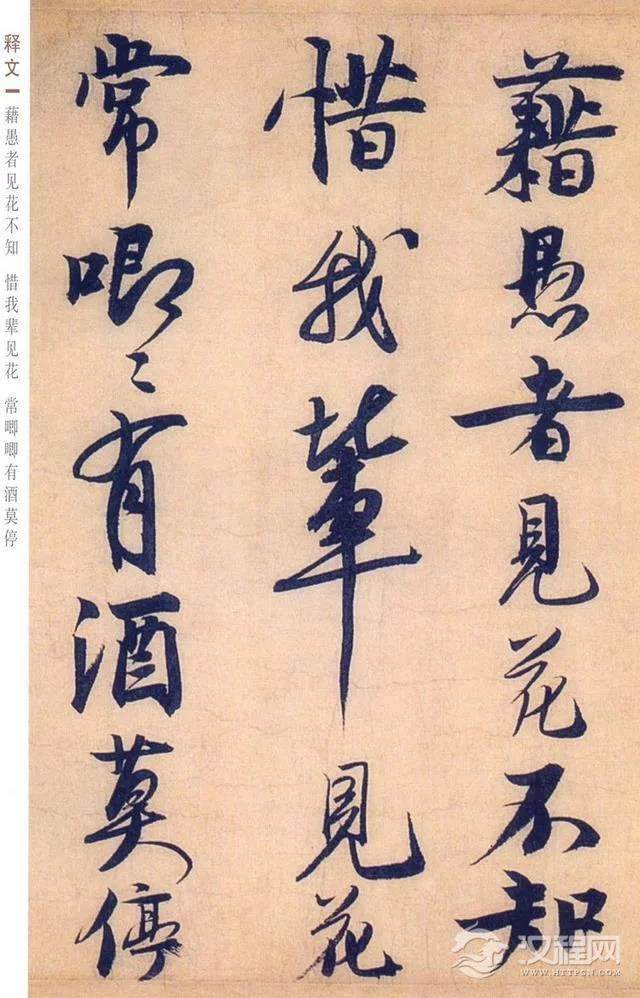 藉愚者見花不知
惜我輩見花
常唧〻有酒莫停
释文一
藉愚者见花不知 惜我辈见花 常唧唧有酒莫停
汉程网
WWW.HTTPCN.COM